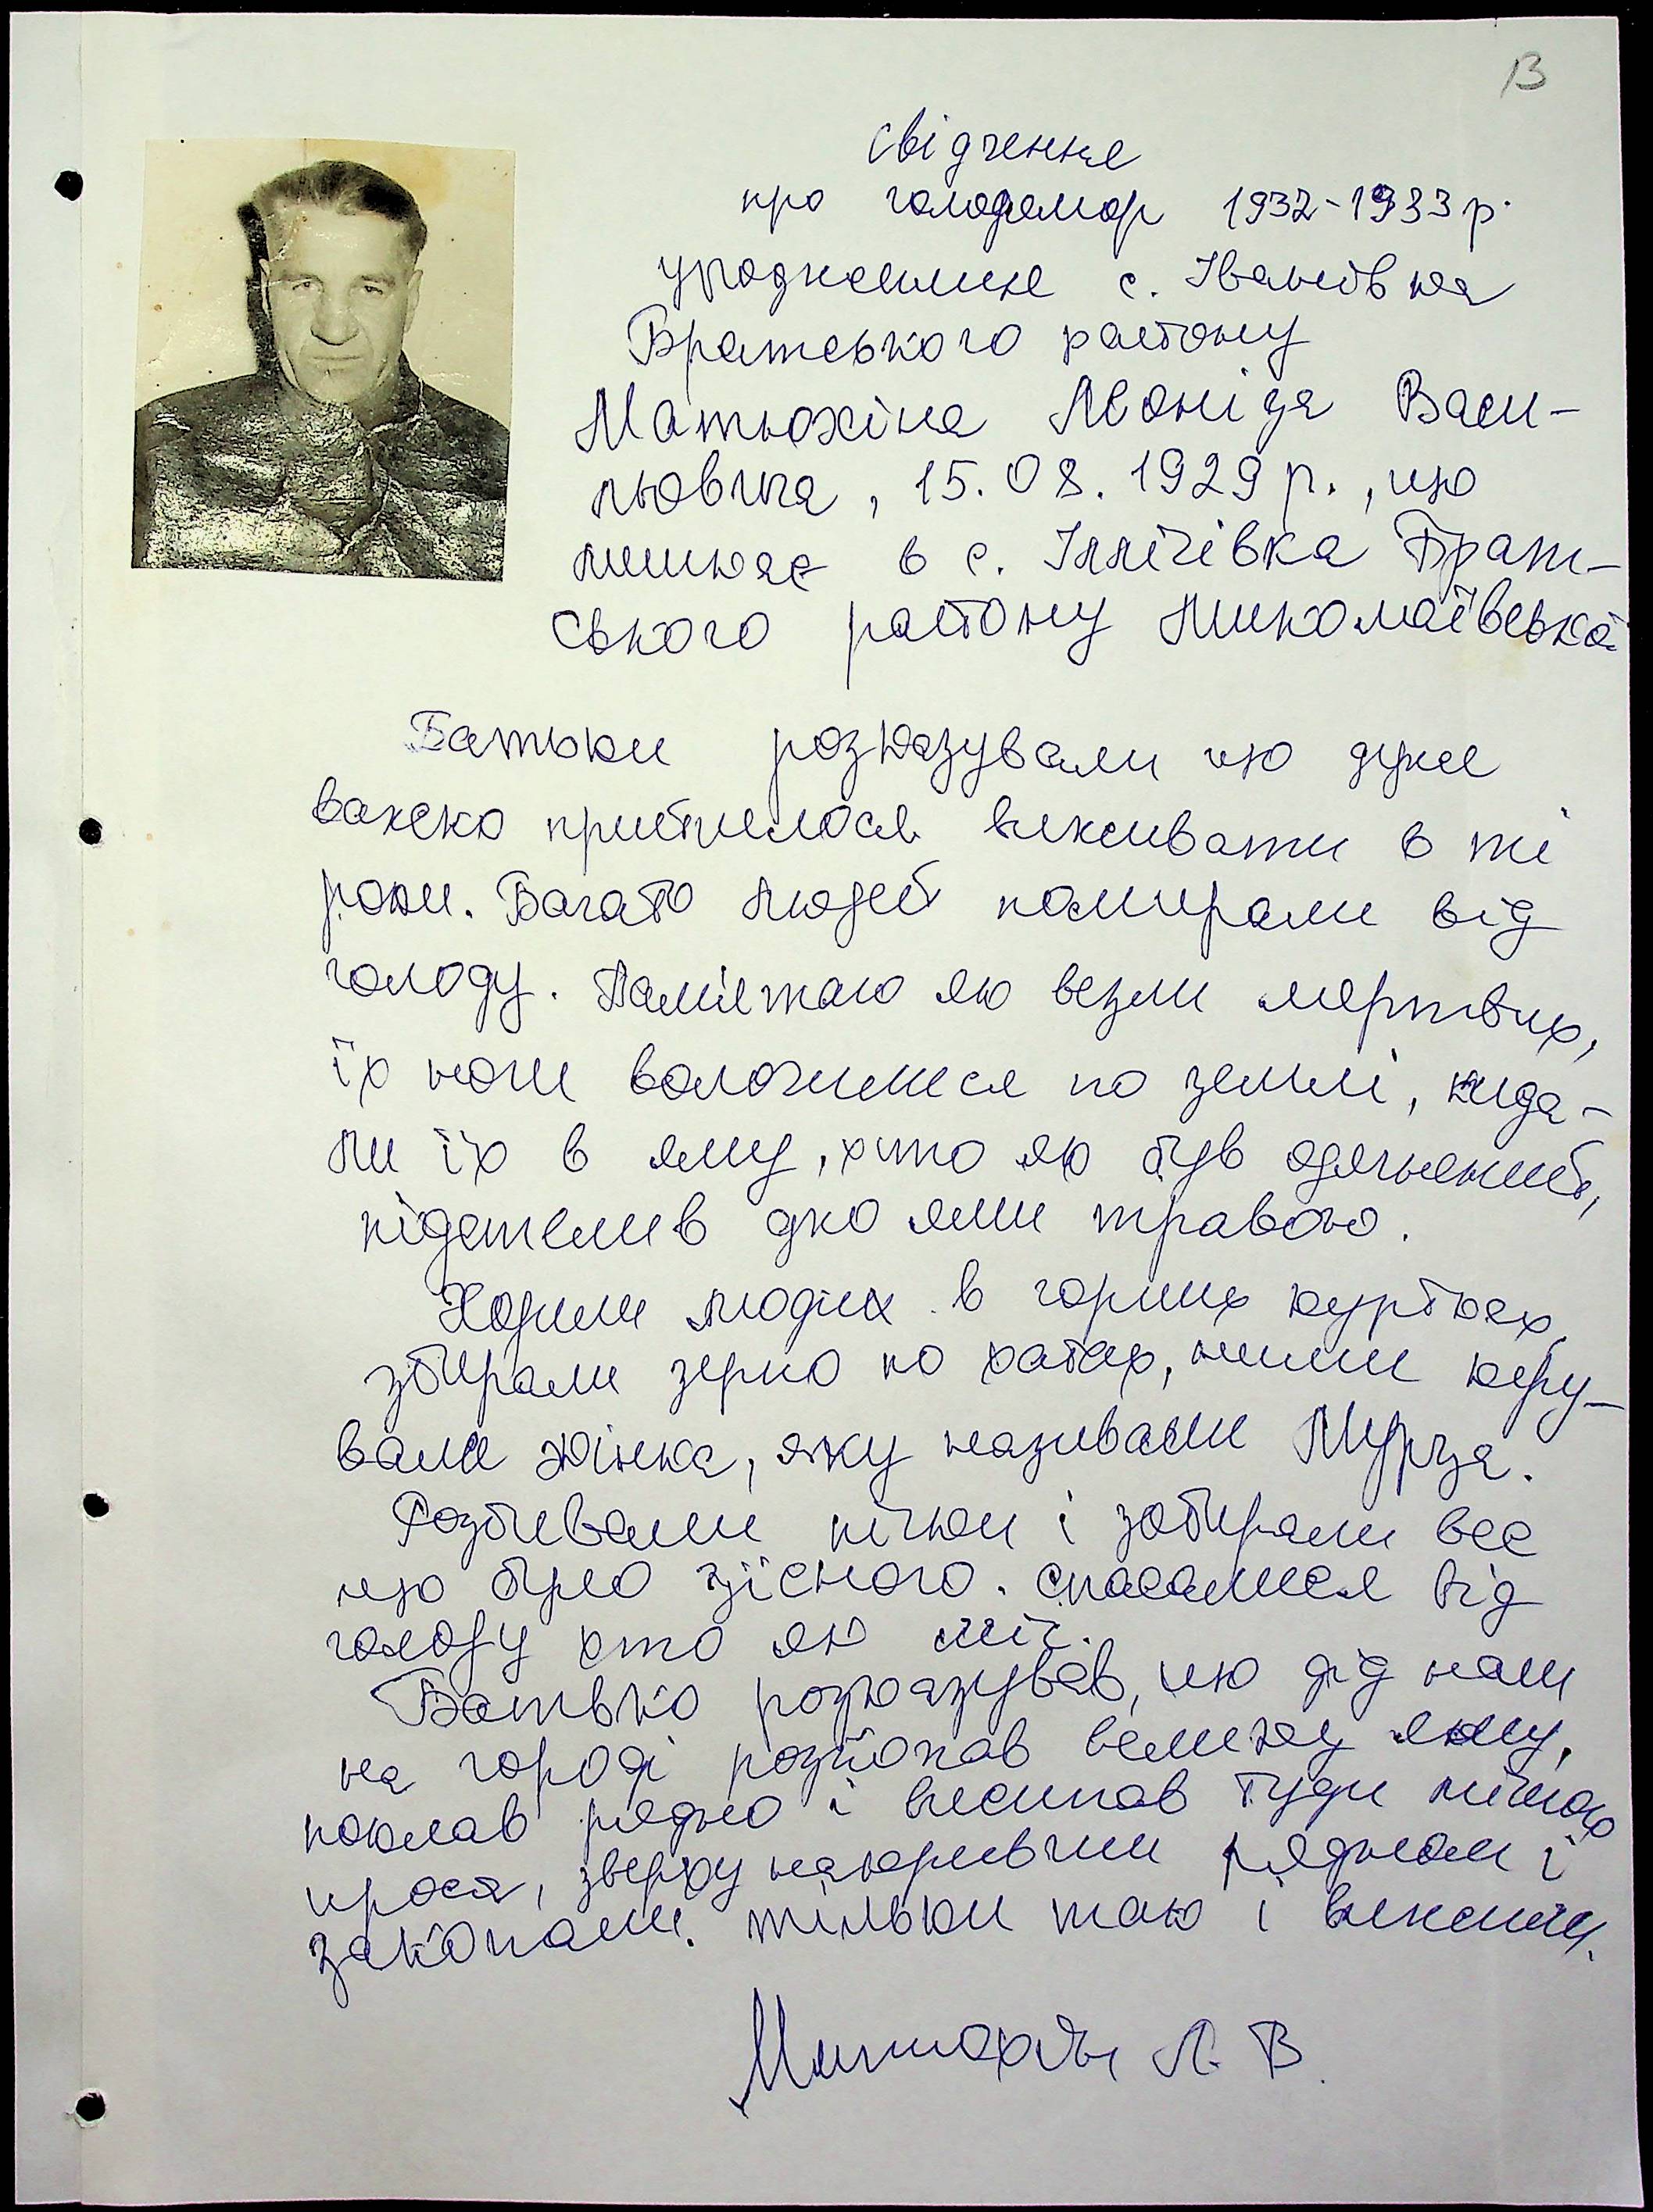 13
Свідчення
про голодомор 1932-1933 р.
уродженеця с. Іванівка
Братського району
Матюхіна Леоніда Васи-
льовича, 15.08.1929 р., що
мешкає в с. Іллічівка Брат-
ського району Миколаївської
Батьки розказували що дуже
важко прийшлося виживати в ті
роки. Багато людей помирали від
голоду. Памʼятаю як везли мертвих,
їх ноги волочилися по землі, кида-
ли їх в яму, хто як був одягнений,
підстелив дно ями травою.
Ходили люди в чорних куртках,
збирали зерно по хатах, ними керу-
вала жінка, яку називали Мурза.
Розбивали пічки і забирали все
що було їсного. спасалися від
голоду хто як міг.
Батько розказував, що дід наш
на городі розкопав велику яму,
поклав рядно і висипав туди мішок
проса, зверху накривши рядном і
закопали. тільки так і вижили.
Матюхін Л. В.